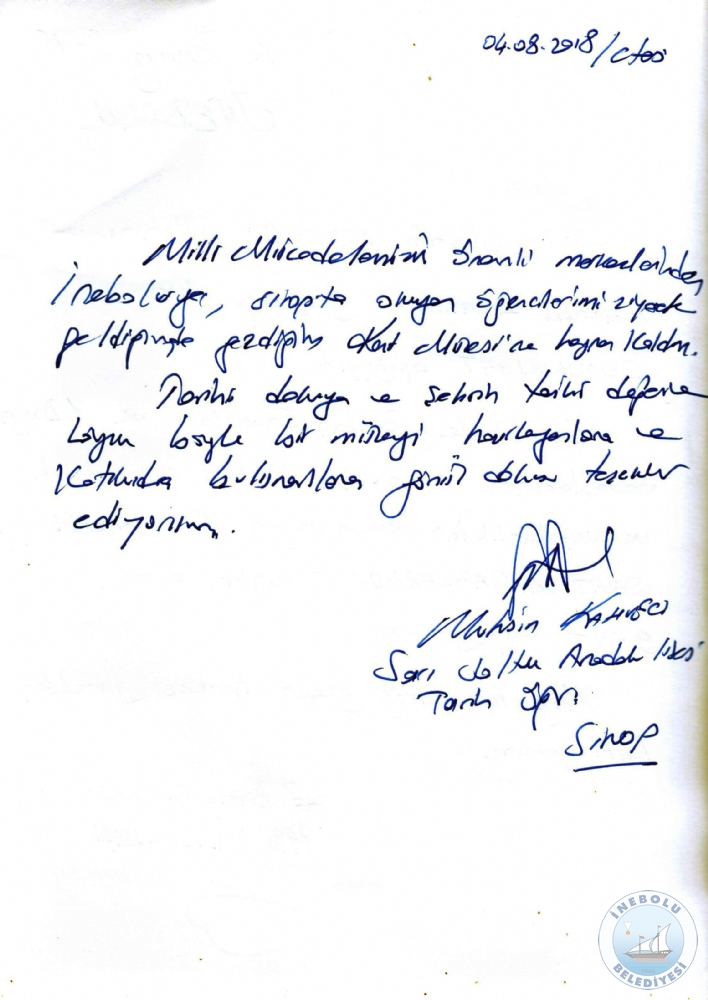 04.08.2018/Ctesi
Milli Mücadelemizin önemli merkezlerinden
İnebolu'ya, Sinopta okuyan öğrencilerimi ziyarete
geldiğimde gezdiğim Kent Müzesi'ne hayran kaldım.
Tarihi dokuya ve şehrin tarihi değerine
uygun böyle bir müzeyi hazırlayanlara ve
katkıda bulunanlara gönül dolusu teşekkür
ediyorum.
Muhsin KAHVECİ
Sarı Saltuk Anadolu Lisesi
Tarih Öğrt.
SİNOP
İNEBOLU
BELEDİYESİ